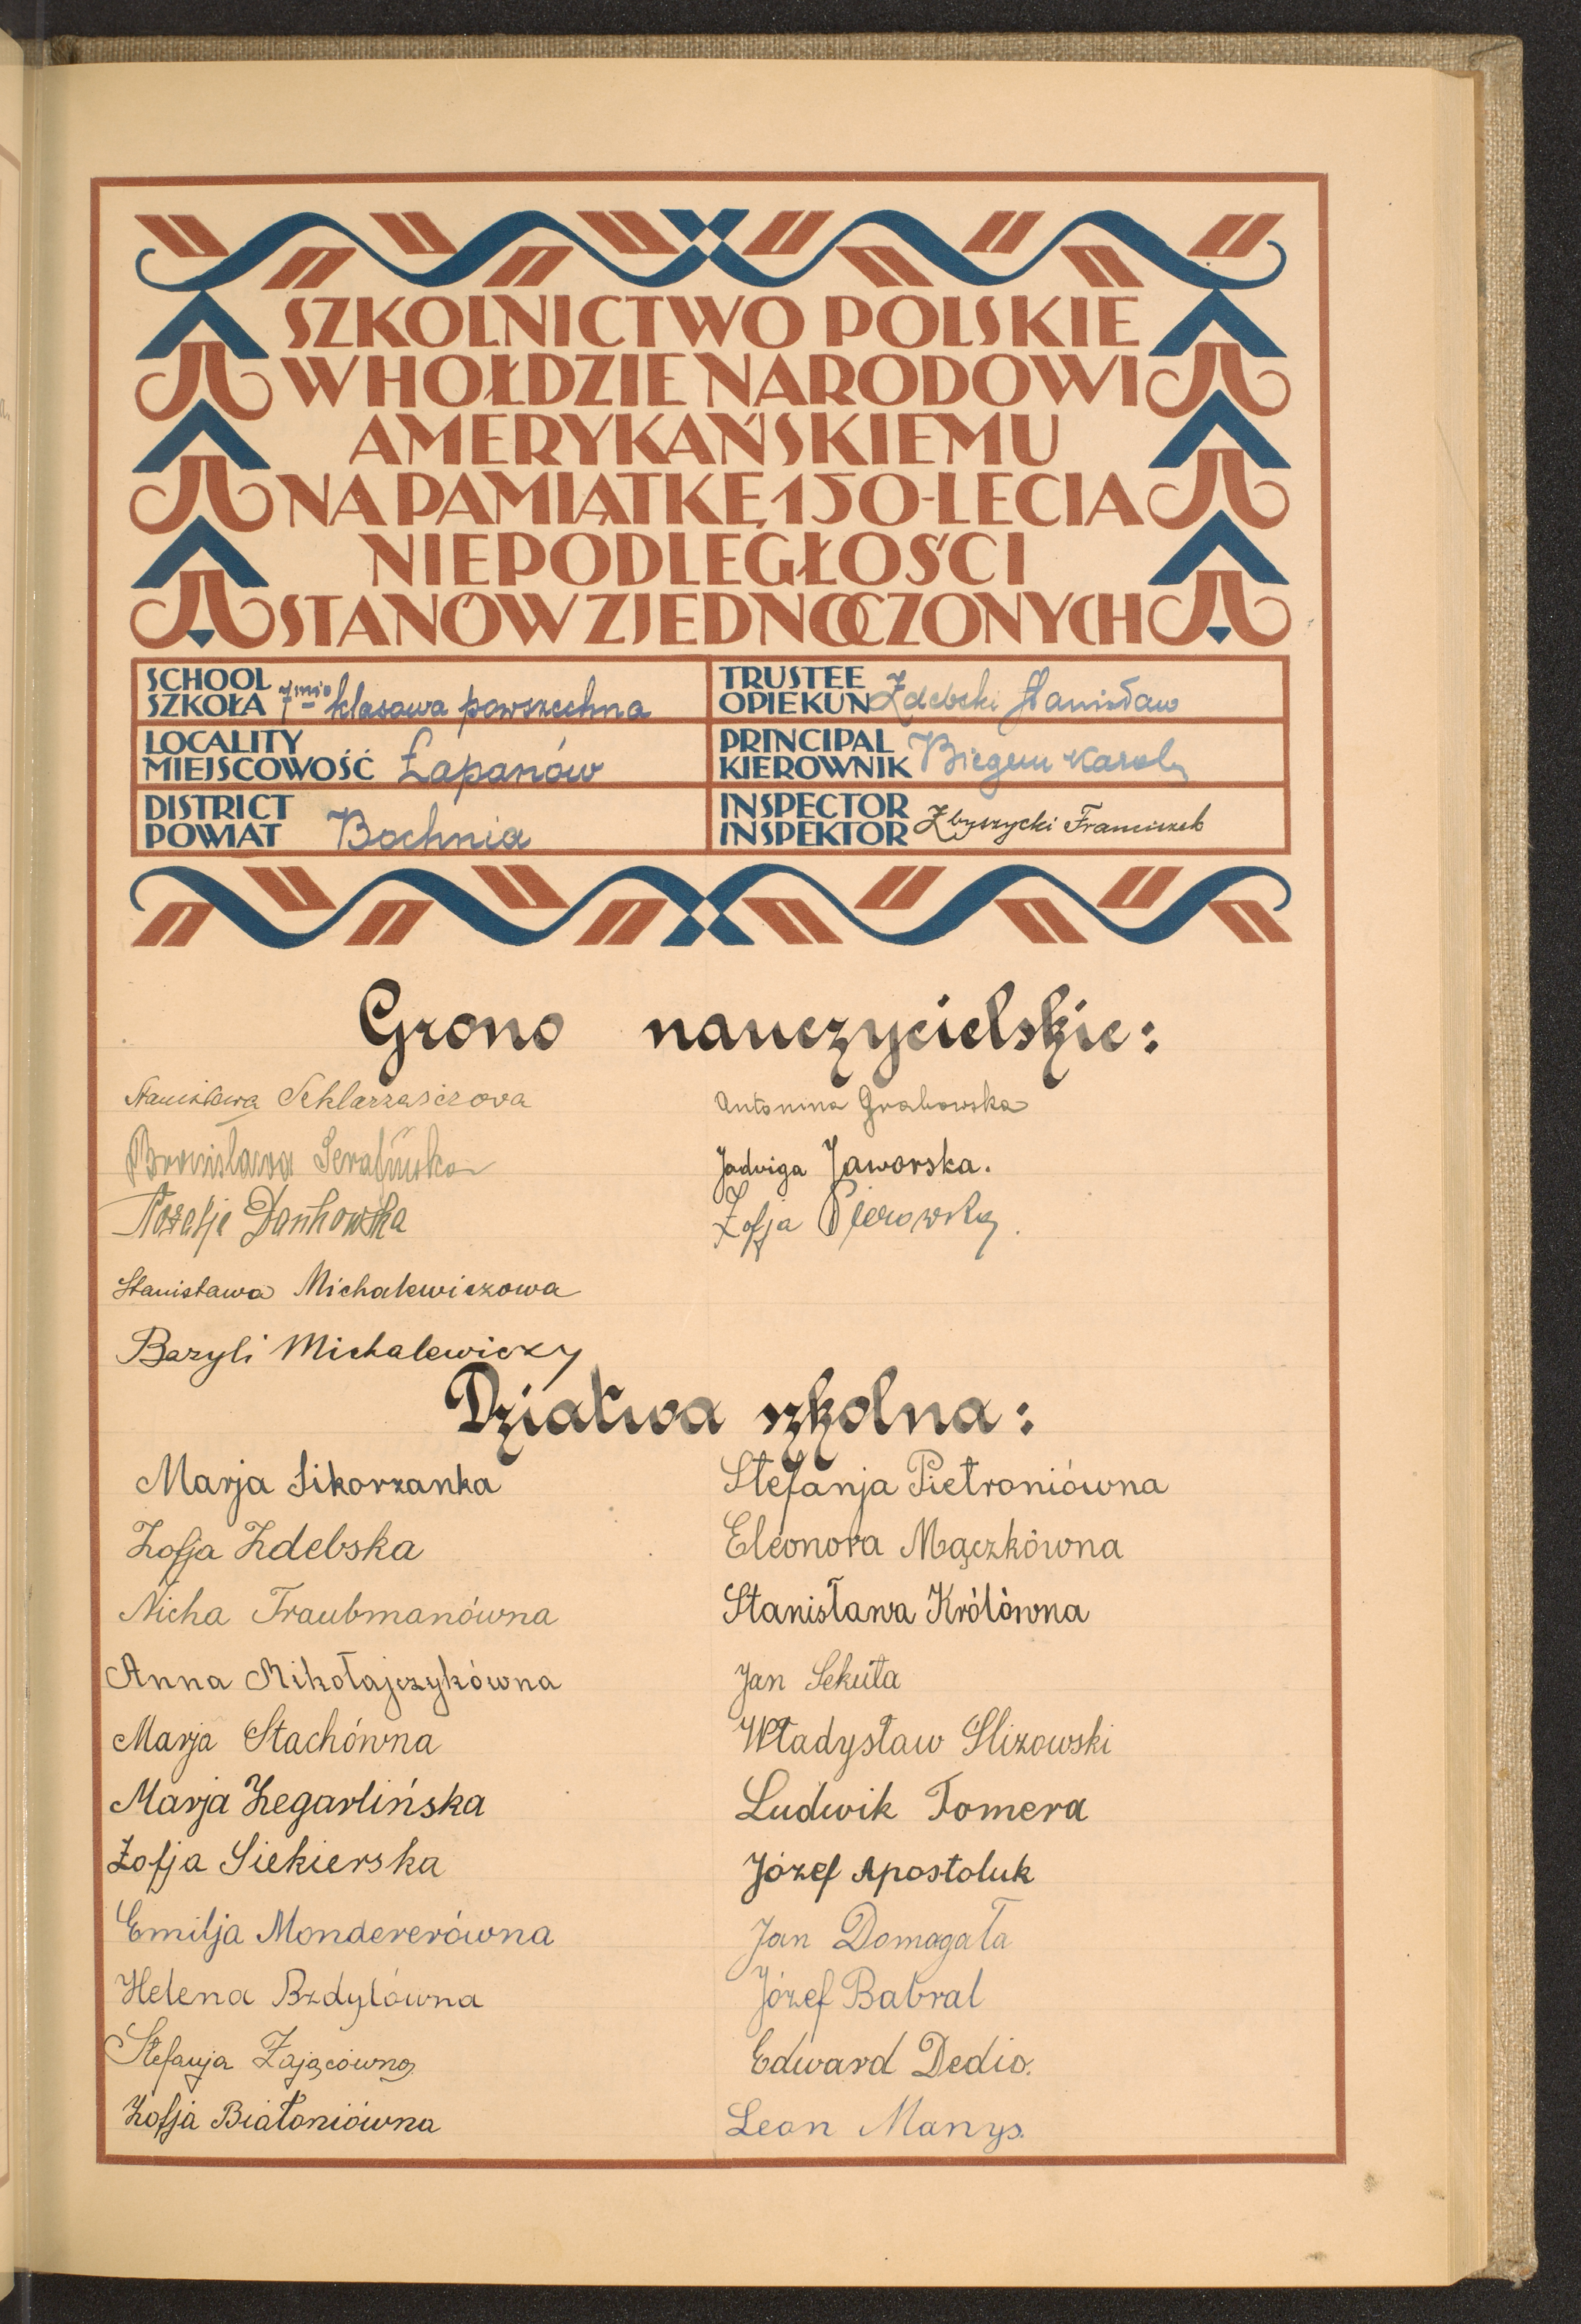 SZKOLNICTWO POLSKIE
W HOŁDZIE NARODOWI
AMERYKAŃSKIEMU
NA PAMIĄTKĘ 150-LECIA
NIEPODLEGŁOŚCI
STANÓW ZJEDNOCZONYCH
SCHOOL
SZKOŁA 7mio klasowa powszechna
TRUSTEE
OPIEKUN Zdebski Stanisław
LOCALITY
MIEJSCOWOŚĆ Łapanów
PRINCIPAL
KIEROWNIK Biegun Karol
DISTRICT
POWIAT Bochnia
INSPECTOR
INSPEKTOR Zbyszycki Franciszek
Grono nauczycielskie:
Stanisława
Bronisława Serafińska
Dańkowska
Stanisława Michalewiczowa
Bazyli Michalewiczy
Antonina Grabowska
Jadwiga Jaworska.
Zofja
Dziatwa szkolna:
Marja Sikorzanka
Zofja Zdebska
Nicha Traubmanówna
Anna Mikołajczykówna
Marja Stachówna
Marja Zegarlińska
Zofja Siekierska
Emilja Mondererówna
Helena Bzdylówna
Stefanja Zającówna
Zofja Białoniówna
Stefanja Pietroniówna
Eleonora Mączkówna
Stanisława Królówna
Jan Sekuła
Władysław Slizowski
Ludwik Tomera
Józef Apostoluk
Jan Domagała
Józef Babral
Edward Dedio.
Leon Manys.